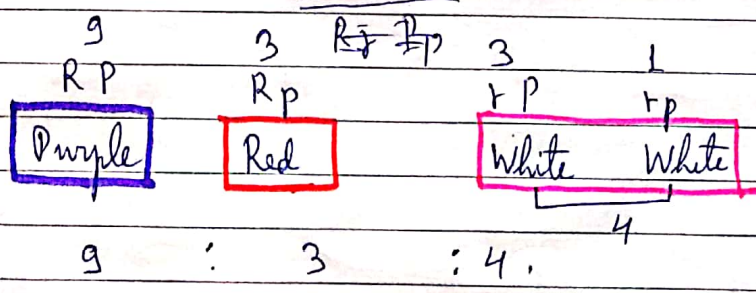 9 3 3 1
R P R p r P r p
Purple Red White White
4
9 : 3 : 4 .